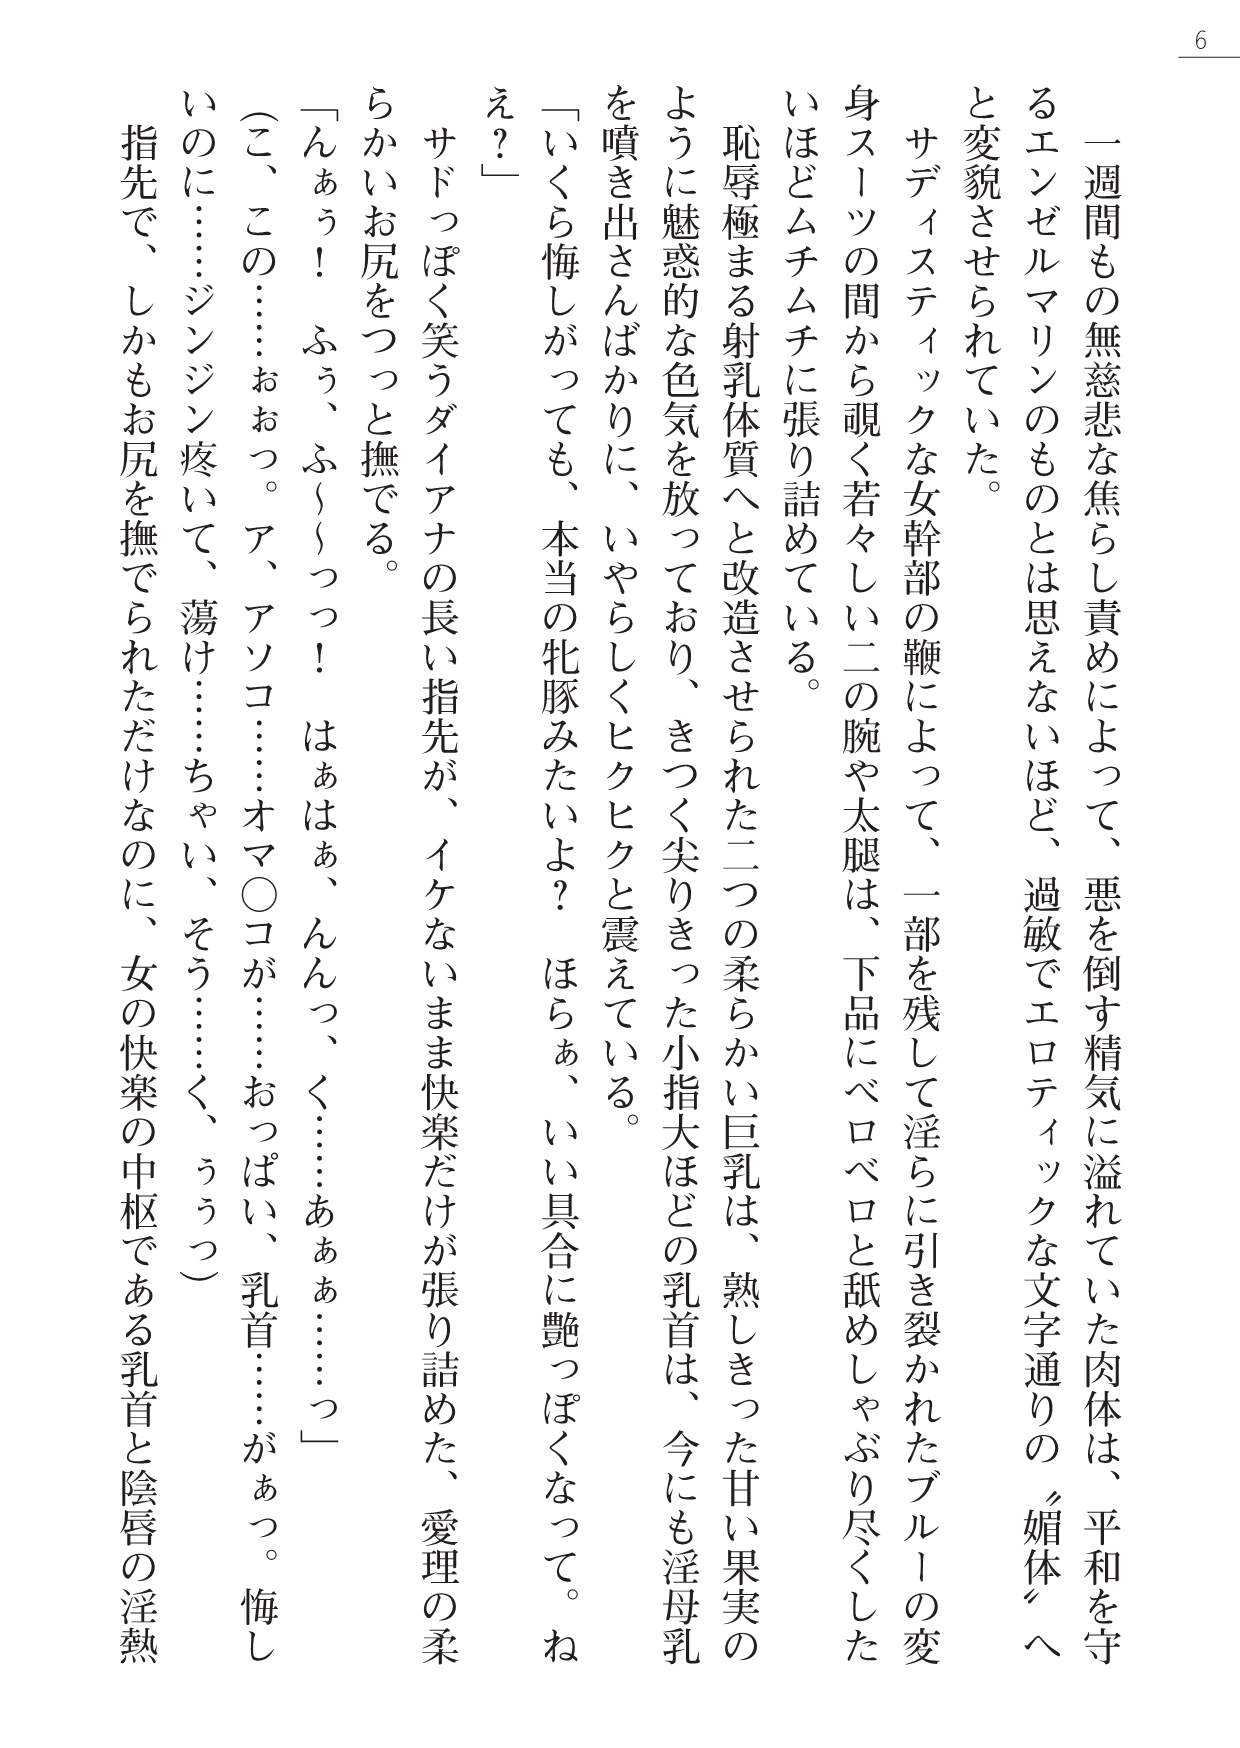 6
一週間もの無慈悲な焦らし責めによって、悪を倒す精気に溢れていた肉体は、平和を守
るエンゼルマリンのものとは思えないほど、過敏でエロティックな文字通りの〝媚体〟へ
と変貌させられていた。
サディスティックな女幹部の鞭によって、一部を残して淫らに引き裂かれたブルーの変
身スーツの間から覗く若々しい二の腕や太腿は、下品にベロベロと舐めしゃぶり尽くした
いほどムチムチに張り詰めている。
恥辱極まる射乳体質へと改造させられた二つの柔らかい巨乳は、熟しきった甘い果実の
ように魅惑的な色気を放っており、きつく尖りきった小指大ほどの乳首は、今にも淫母乳
を噴き出さんばかりに、いやらしくヒクヒクと震えている。
「いくら悔しがっても、本当の牝豚みたいよ？　ほらぁ、いい具合に艶っぽくなって。ね
え？」
サドっぽく笑うダイアナの長い指先が、イケないまま快楽だけが張り詰めた、愛理の柔
らかいお尻をつっと撫でる。
「んぁぅ！　ふぅ、ふ～～っっ！　はぁはぁ、んんっ、く……あぁぁ……っ」
（こ、この……ぉぉっ。ア、アソコ……オマ〇コが……おっぱい、乳首……がぁっ。悔し
いのに……ジンジン疼いて、蕩け……ちゃい、そう……く、ぅぅっ）
指先で、しかもお尻を撫でられただけなのに、女の快楽の中枢である乳首と陰唇の淫熱